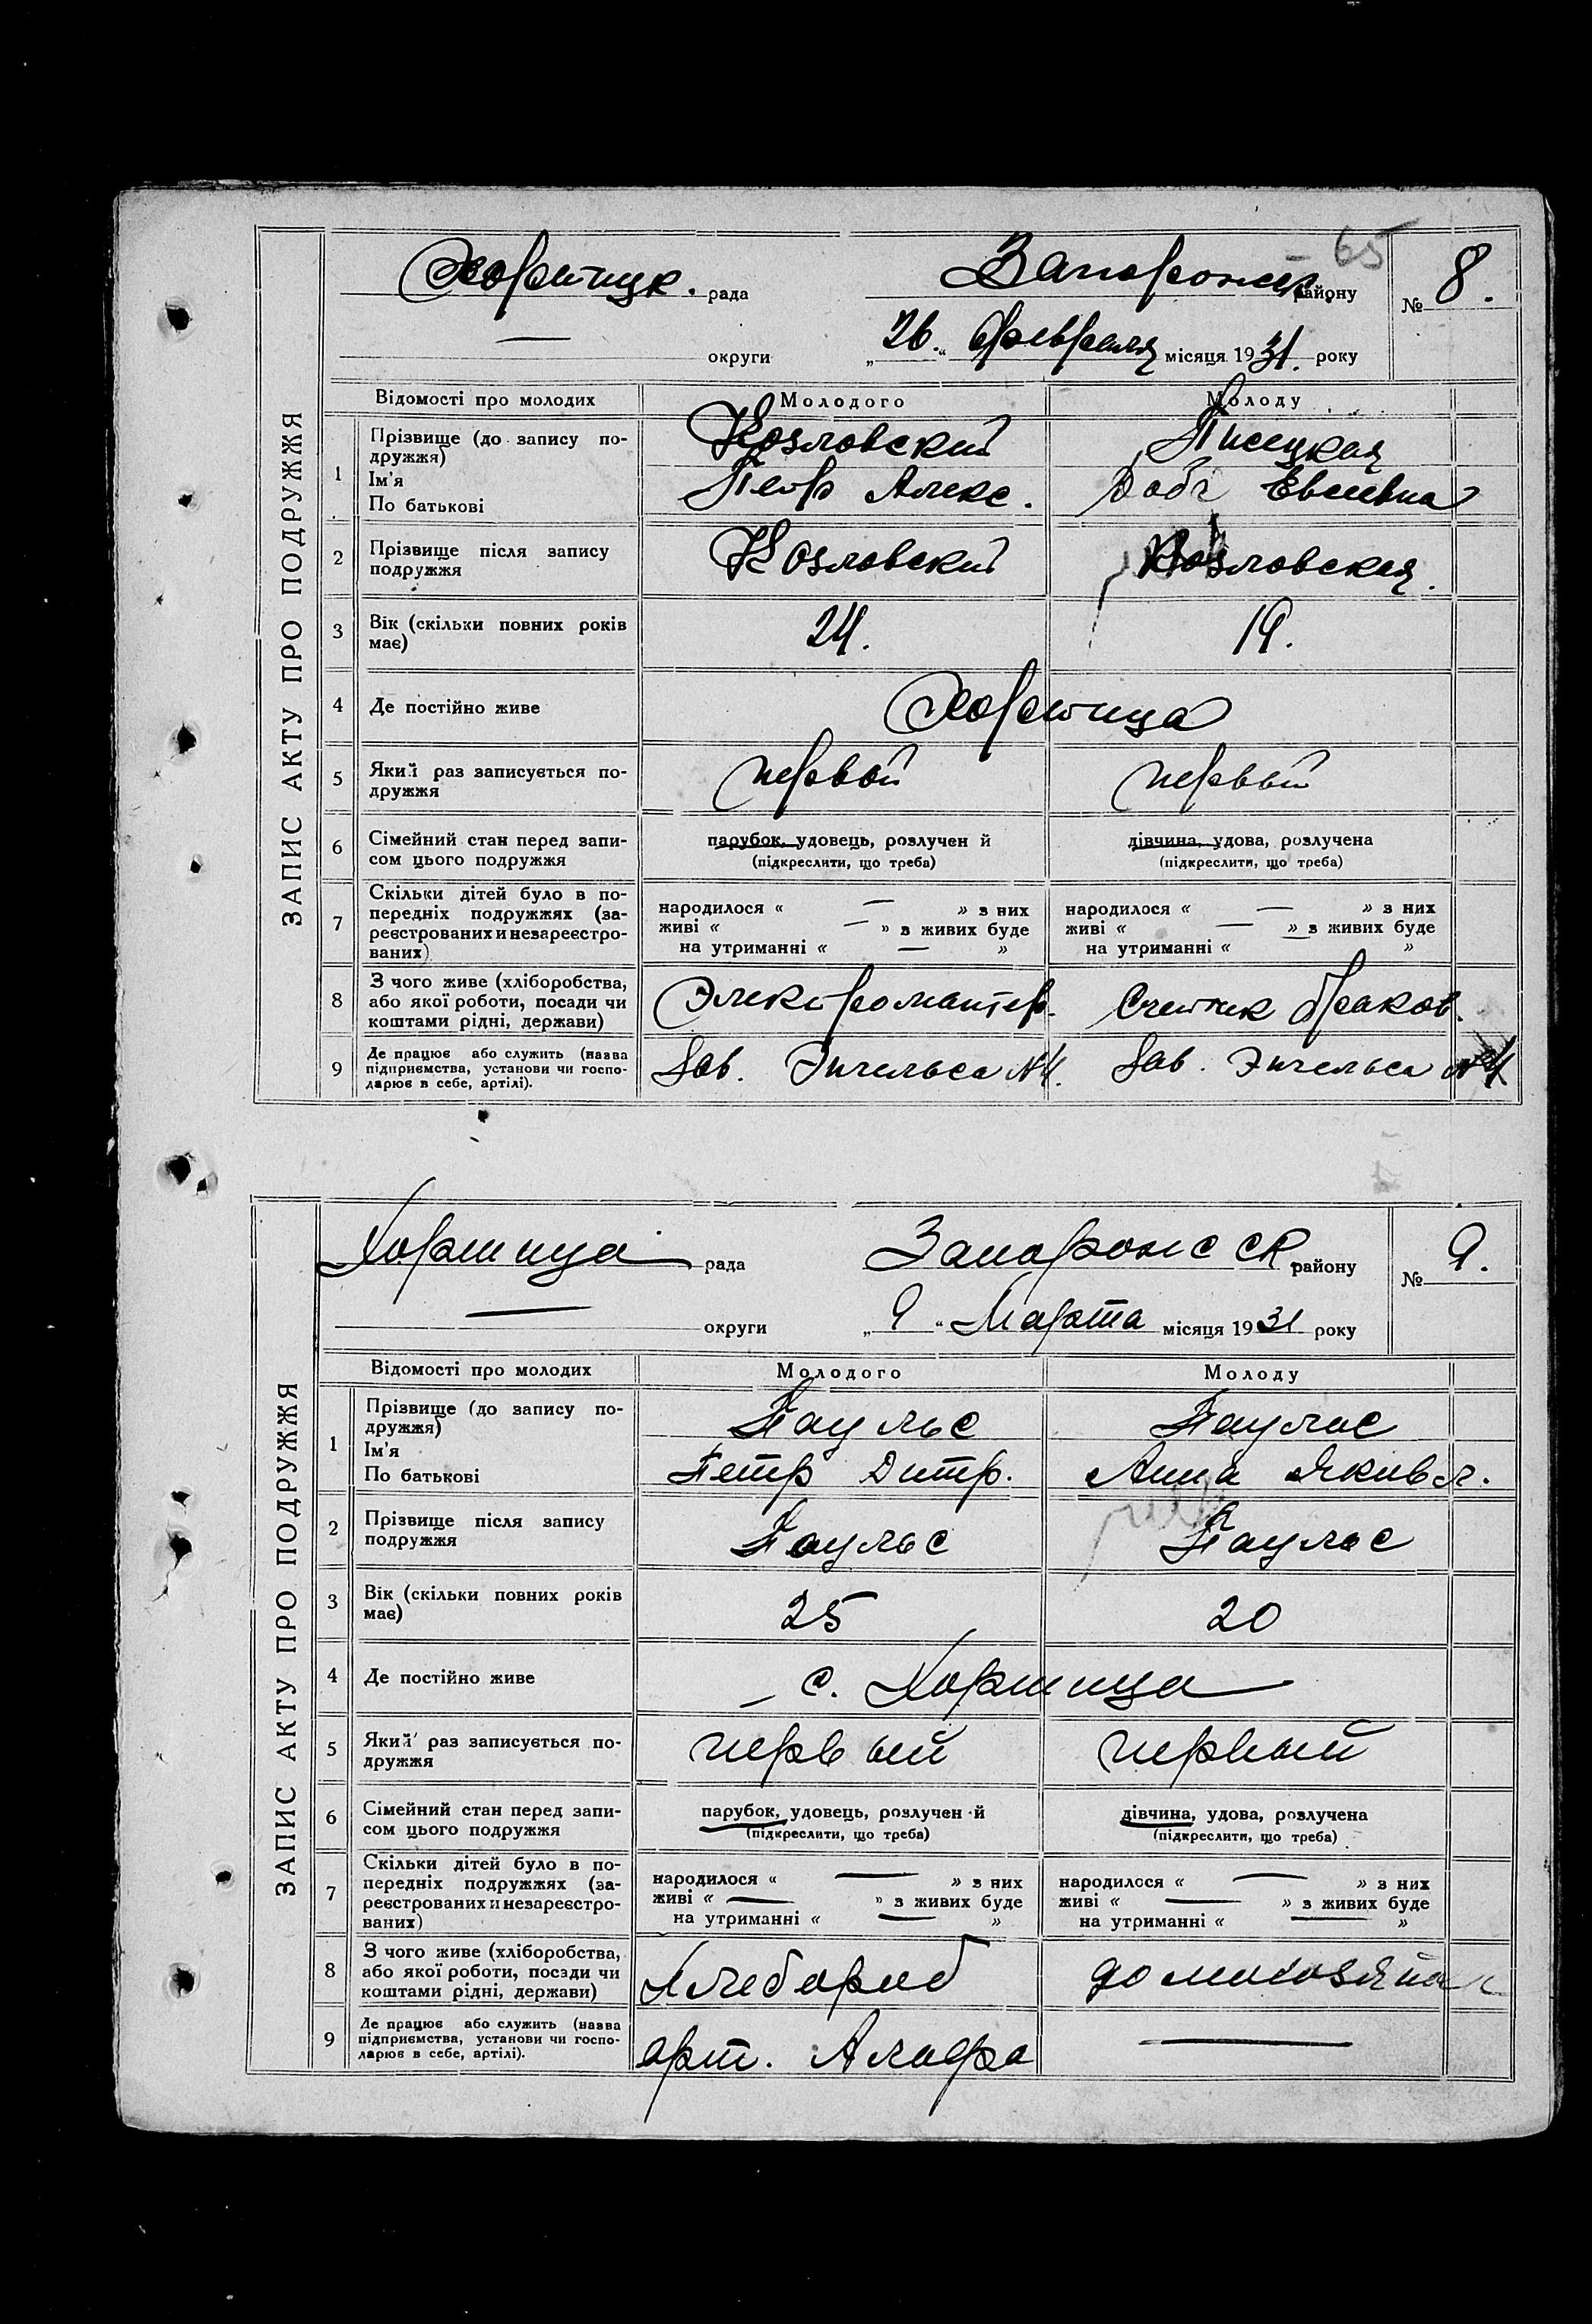 65
Хортицк. рада Запорожск. району № 8.
— округи „26." Февраля місяця 1931. року
ЗАПИС АКТУ ПРО ПОДРУЖЖЯ
Відомості про молодих Молодого Молоду
1 Прізвище (до запису по-
дружжя) Козловский Писецкая
Ім'я
По батькові Петр Алекс. Евсеевна
2 Прізвище після запису
подружжя Козловский Козловская.
3 Вік (скільки повних років
має) 24. 19.
4 Де постійно живе Хортица
5 Який раз записується по-
дружжя первый первый
6 Сімейний стан перед запи-
сом цього подружжя парубок, удовець, розлучен й дівчина, удова, розлучена
(підкреслити, що треба) (підкреслити, що треба)
7 Скільки дітей було в по-
передніх подружжях (за-
реєстрованих и незареєстро-
ваних)
народилося « — » з них народилося « — » з них
живі « — » з живих буде живі « — » з живих буде
на утриманні « — » на утриманні « »
8 З чого живе (хліборобства,
або якої роботи, посади чи
коштами рідні, держави) Электромонтер. Счетчик браков.
9 Де працює або служить (назва
підприємства, установи чи госпо-
дарює в себе, артілі). Зав. Энгельса №4. Зав. Энгельса №4
Хортица рада Запорожсск району № 9.
— округи „9" Марта місяця 1931 року
ЗАПИС АКТУ ПРО ПОДРУЖЖЯ
Відомості про молодих Молодого Молоду
1 Прізвище (до запису по-
дружжя) Паульс Паульс
Ім'я
По батькові Петр Дитр. Анна Яковл.
2 Прізвище після запису
подружжя Паульс Паульс
3 Вік (скільки повних років
має) 25 20
4 Де постійно живе с. Хортица
5 Який раз записується по-
дружжя первый первый
6 Сімейний стан перед запи-
сом цього подружжя парубок, удовець, розлучен й дівчина, удова, розлучена
(підкреслити, що треба) (підкреслити, що треба)
7 Скільки дітей було в по-
передніх подружжях (за-
реєстрованих и незареєстро-
ваних)
народилося « — » з них народилося « — » з них
живі « — » з живих буде живі « — » з живих буде
на утриманні « — » на утриманні « — »
8 З чого живе (хліборобства,
або якої роботи, посади чи
коштами рідні, держави) Хлебороб
9 Де працює або служить (назва
підприємства, установи чи госпо-
дарює в себе, артілі). арт. —